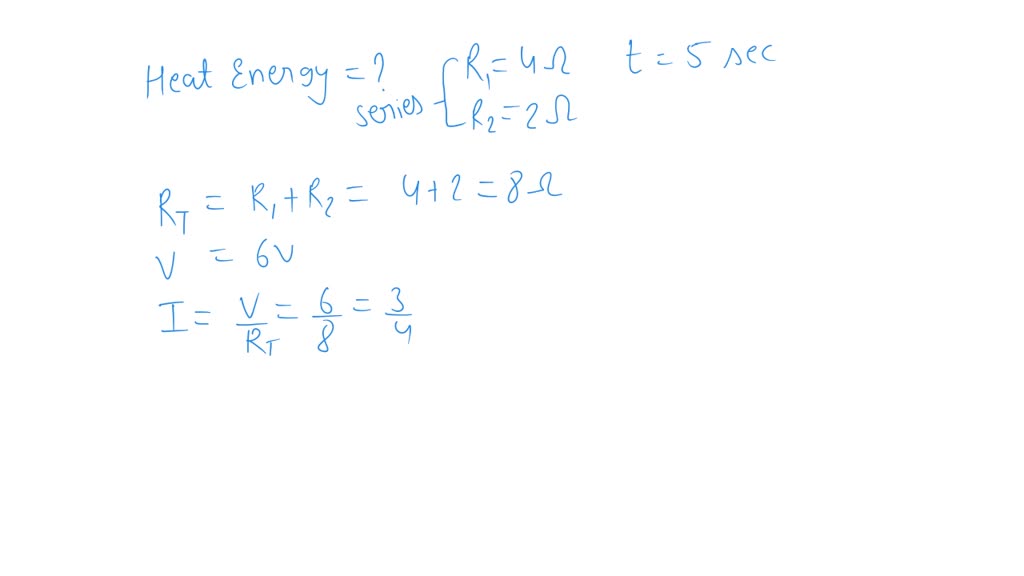 Heat Energy = ? series { R₁ = 4Ω R₂ = 2Ω t = 5 sec
R_T = R₁ + R₂ = 4 + 2 = 8Ω
V = 6V
I = V/R_T = 6/8 = 3/4